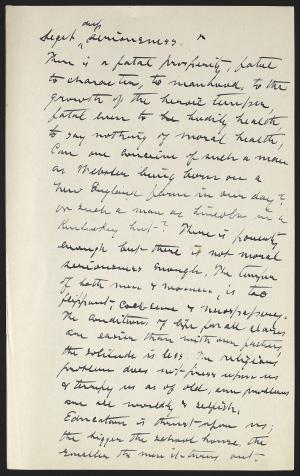 deep
Seget seriousness.
There is a fatal prosperity, fatal
to character, to manhood, to the
growth of the heroic temper,
fatal even to the bodily health
to say nothing of moral health,
Can one conceive of such a man
as Webster being born on a
New England farm in our day?
or such a man as Lincoln in a
Kentucky hut? There is poverty
enough but there is not moral
seriousness enough. The temper
of both men & women, is too
flippant, cock-sure & newspapery.
The conditions of life for all classes
are easier than with our fathers,
the solitude is less. The religious
problem does not press upon us
& terrify us as of old, our problems
are all worldly & selfish.
Education is thrust upon us;
the bigger the school house, the
smaller the men it turns out.